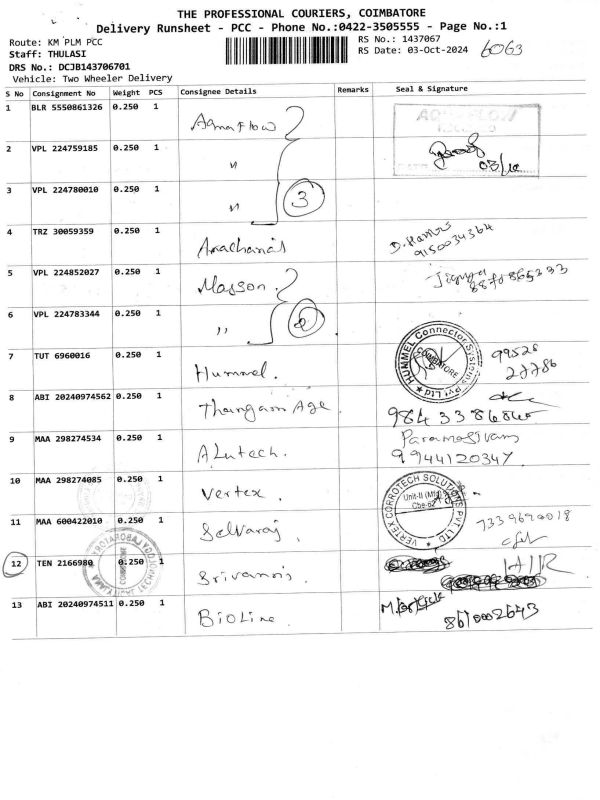 THE PROFESSIONAL COURIERS, COIMBATORE
Delivery Runsheet - PCC - Phone No.:0422-3505555 - Page No.:1
Route: KM PLM PCC
RS No.: 1437067
Staff: THULASI
RS Date: 03-Oct-2024
6063
DRS No.: DCJB143706701
Vehicle: Two Wheeler Delivery
S No Consignment No Weight PCS Consignee Details Remarks Seal & Signature
1 BLR 5550861326 0.250 1 Aquaflow
AQUAFLOW
2 VPL 224759185 0.250 1 "
03/10
3 VPL 224780010 0.250 1 "
3
4 TRZ 30059359 0.250 1
9150034364
5 VPL 224852027 0.250 1 Masson
6 VPL 224783344 0.250 1 "
2
7 TUT 6960016 0.250 1 Hummel.
HUMMEL Connector Systems Pvt Ltd
COIMBATORE
99528
27786
8 ABI 20240974562 0.250 1 Thangam Age.
9 MAA 298274534 0.250 1 Alutech.
Paramasivam
9944120347
10 MAA 298274085 0.250 1 Vertex.
VERTEX CORROTECH SOLUTIONS PVT. LTD
Unit-II (Mfg)
11 MAA 600422010 0.250 1 Selvaraj
7339690018
12 TEN 2166980 0.250 1
COIMBATORE
13 ABI 20240974511 0.250 1 Bioline.
8610002643